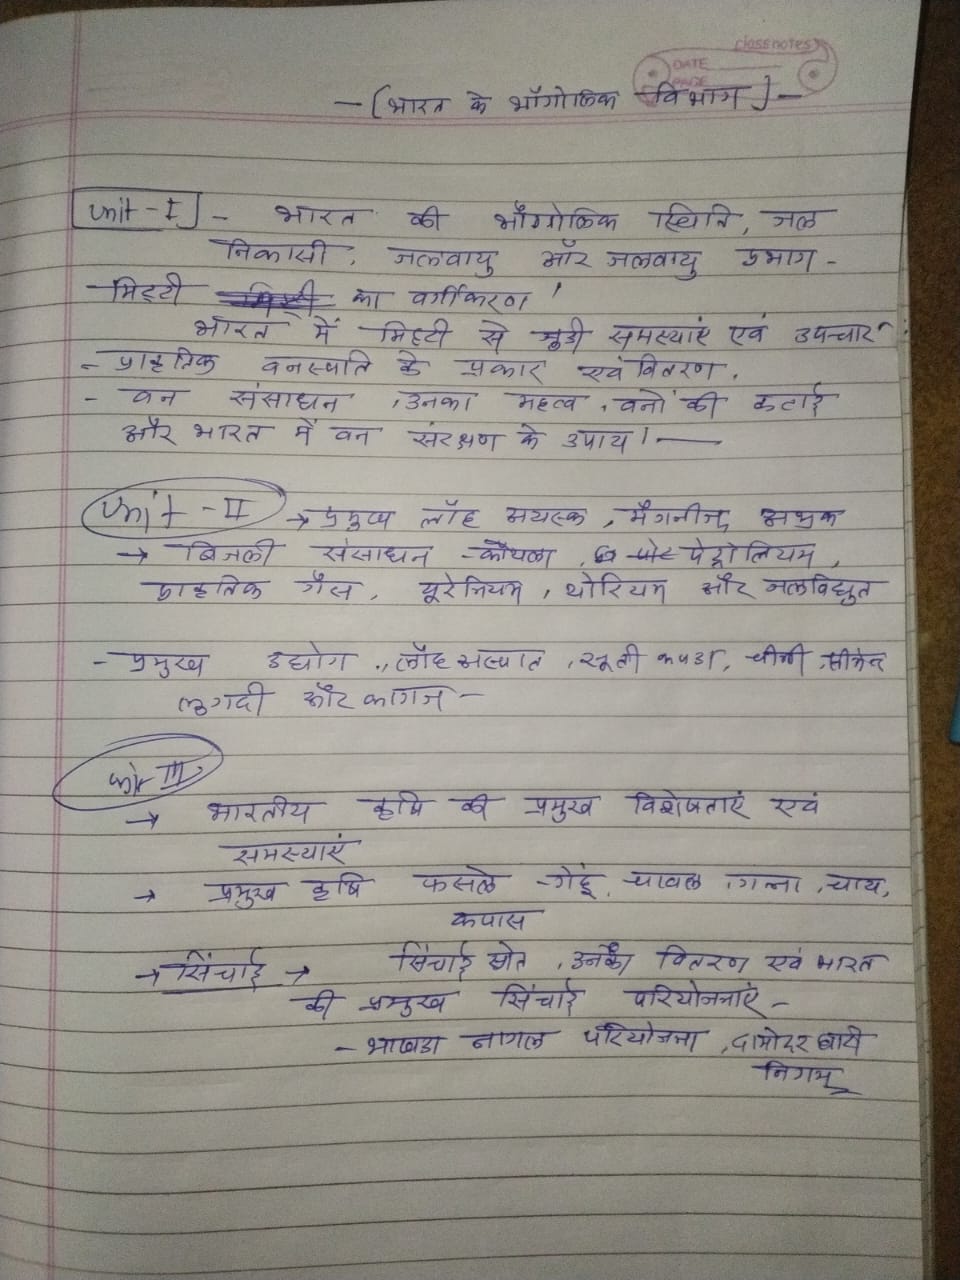 classnotes
DATE
PAGE
-[भारत के भौगोलिक विभाग]-
Unit-I - भारत की भौगोलिक स्थिति, जल
निकासी, जलवायु और जलवायु प्रभाग-
मिट्टी का वर्गीकरण!
भारत में मिट्टी से जूडी समस्याएं एवं उपचार
- प्राकृतिक वनस्पति के प्रकार एवं वितरण,
- वन संसाधन, उनका महत्व, वनों की कटाई
और भारत में वन संरक्षण के उपाय।—
Unit-II → प्रमुख लौह अयस्क, मैगनीज, अभ्रक
→ बिजली संसाधन -कोयला, पेट्रोलियम,
प्राकृतिक गैस, यूरेनियम, थोरियम और जलविद्युत
- प्रमुख उद्योग, लौह अस्पात, सूती कपडा, चीनी, सीमेन्ट
लुगदी और कागज-
Unit III
→ भारतीय कृषि की प्रमुख विशेषताएं एवं
समस्याएं
→ प्रमुख कृषि फसले -गेहूं, चावल, गन्ना, चाय,
कपास
→ सिंचाई → सिंचाई स्रोत, उनका वितरण एवं भारत
की प्रमुख सिंचाई परियोजनाएं-
- भाखडा नागल परियोजना, दामोदर घाटी
निगम